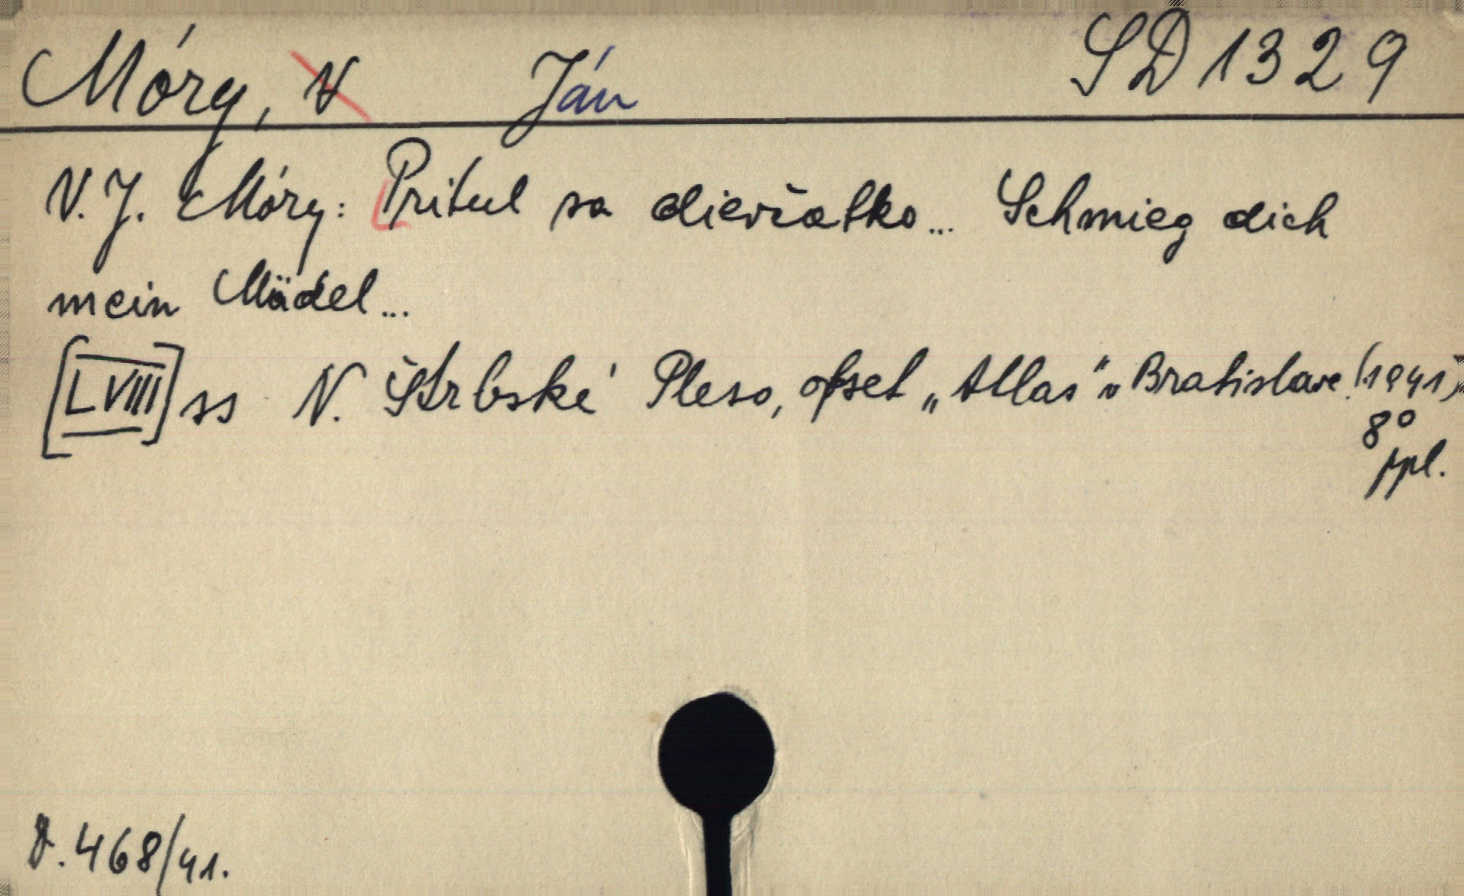 Móry, V Ján SD 1329
V. J. Móry: Pritul sa dievčatko... Schmieg dich
mein Mädel...
[LVIII] ss N. Štrbské Pleso, ofset „Atlas" v Bratislave (1941)
8°
ppl.
468/41.